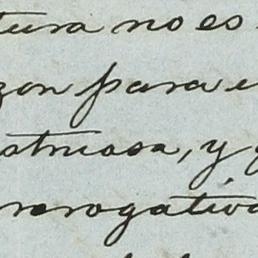 tura no es
zon para e
struosa, y g
rrogativa